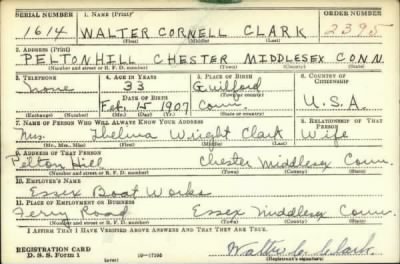 SERIAL NUMBER 1. NAME (Print) ORDER NUMBER
1614 WALTER CORNELL CLARK 2395
(First) (Middle) (Last)
2. ADDRESS (Print)
PELTON HILL CHESTER MIDDLESEX CONN.
(Number and street or R. F. D. number) (Town) (County) (State)
3. TELEPHONE 4. AGE IN YEARS 5. PLACE OF BIRTH 6. COUNTRY OF CITIZENSHIP
None 33 Guilford
DATE OF BIRTH (Town or county)
Feb. 15 1907 Conn. U.S.A.
(Exchange) (Number) (Mo.) (Day) (Yr.) (State or country)
7. NAME OF PERSON WHO WILL ALWAYS KNOW YOUR ADDRESS 8. RELATIONSHIP OF THAT PERSON
Mrs. Thelma Wright Clark Wife
(Mr., Mrs., Miss) (First) (Middle) (Last)
9. ADDRESS OF THAT PERSON
Pelton Hill Chester Middlesex Conn.
(Number and street or R. F. D. number) (Town) (County) (State)
10. EMPLOYER'S NAME
Essex Boat Works
11. PLACE OF EMPLOYMENT OR BUSINESS
Ferry Road Essex Middlesex Conn.
(Number and street or R. F. D. number) (Town) (County) (State)
I AFFIRM THAT I HAVE VERIFIED ABOVE ANSWERS AND THAT THEY ARE TRUE.
REGISTRATION CARD
D. S. S. Form 1 (over) 16-17105 Walter C. Clark
(Registrant's signature)